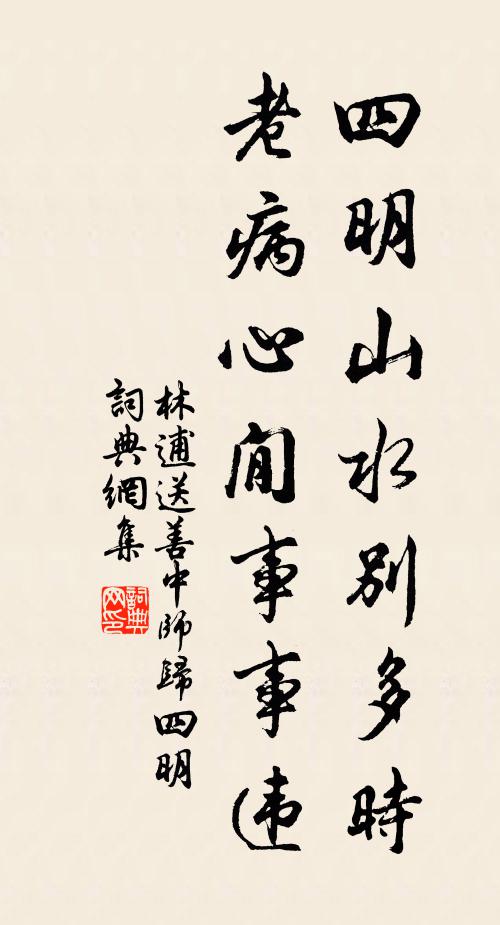 四明山水別多時
老病心閒事事违
林逋送善中師歸四明
詞典網集
詞典网印